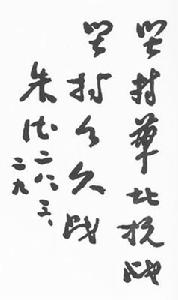 坚持华北抗战
坚持持久战
朱德 二八、三、
二九